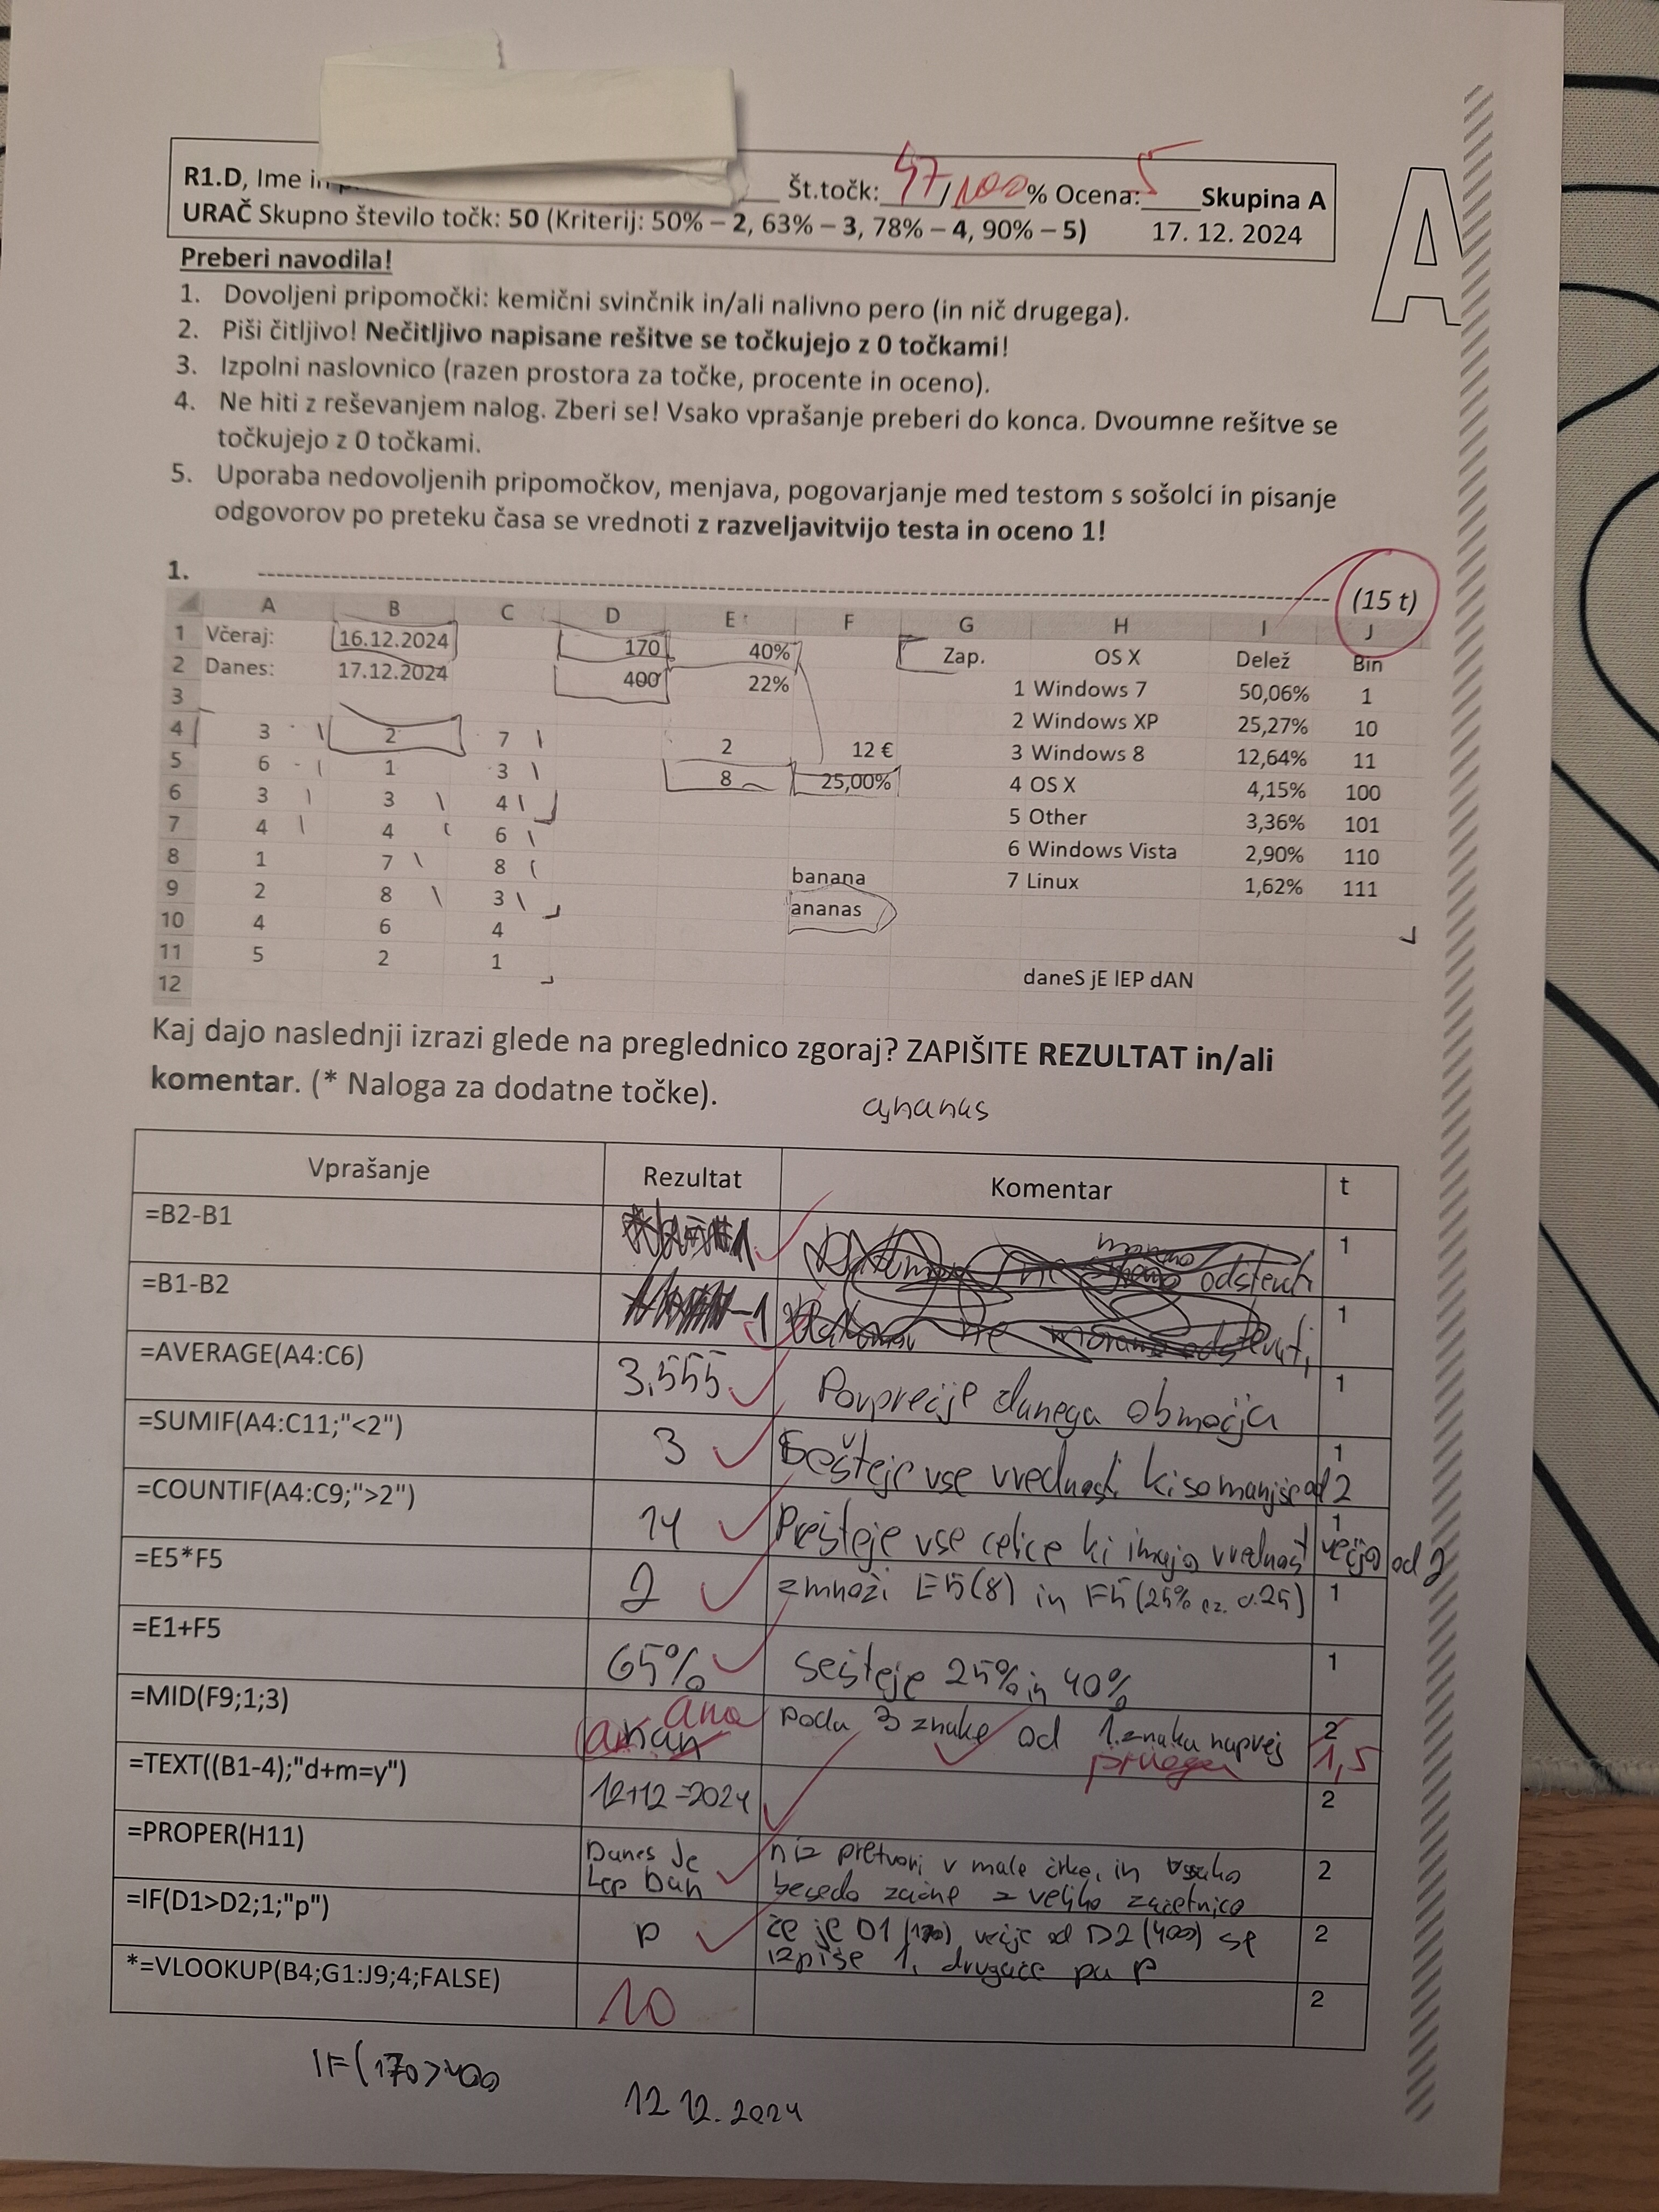 R1.D, Ime in Št.točk: 47/100% Ocena: 5 Skupina A
URAČ Skupno število točk: 50 (Kriterij: 50% – 2, 63% – 3, 78% – 4, 90% – 5) 17. 12. 2024
A
Preberi navodila!
1. Dovoljeni pripomočki: kemični svinčnik in/ali nalivno pero (in nič drugega).
2. Piši čitljivo! Nečitljivo napisane rešitve se točkujejo z 0 točkami!
3. Izpolni naslovnico (razen prostora za točke, procente in oceno).
4. Ne hiti z reševanjem nalog. Zberi se! Vsako vprašanje preberi do konca. Dvoumne rešitve se
točkujejo z 0 točkami.
5. Uporaba nedovoljenih pripomočkov, menjava, pogovarjanje med testom s sošolci in pisanje
odgovorov po preteku časa se vrednoti z razveljavitvijo testa in oceno 1!
1. (15 t)
A B C D E F G H I J
1 Včeraj: 16.12.2024 170 40% Zap. OS X Delež Bin
2 Danes: 17.12.2024 400 22% 1 Windows 7 50,06% 1
3 2 Windows XP 25,27% 10
4 3 2 7 2 12 € 3 Windows 8 12,64% 11
5 6 1 3 8 25,00% 4 OS X 4,15% 100
6 3 3 4 5 Other 3,36% 101
7 4 4 6 6 Windows Vista 2,90% 110
8 1 7 8 banana 7 Linux 1,62% 111
9 2 8 3 ananas
10 4 6 4
11 5 2 1 daneS jE lEP dAN
12
Kaj dajo naslednji izrazi glede na preglednico zgoraj? ZAPIŠITE REZULTAT in/ali
komentar. (* Naloga za dodatne točke).
ananas
Vprašanje Rezultat Komentar t
=B2-B1 1 moramo odštevati 1
=B1-B2 -1 ne moramo odštevati 1
=AVERAGE(A4:C6) 3,555 Povprečje danega območja 1
=SUMIF(A4:C11;"<2") 3 Sešteje vse vrednosti ki so manjše od 2 1
=COUNTIF(A4:C9;">2") 14 Prešteje vse celice ki imajo vrednost večjo od 2 1
=E5*F5 2 zmnoži E5(8) in F5(25% oz. 0.25) 1
=E1+F5 65% sešteje 25% in 40% 1
=MID(F9;1;3) anan ana poda 3 znake od 1. znaka naprej prvega 2 1,5
=TEXT((B1-4);"d+m=y") 12+12=2024 2
=PROPER(H11) Danes Je Lep Dan niz pretvori v male črke, in vsako besedo začne z veliko začetnico 2
=IF(D1>D2;1;"p") p če je D1 (170) večje od D2 (400) se izpiše 1, drugače pa p 2
*=VLOOKUP(B4;G1:J9;4;FALSE) 10 2
IF(170>400
12.12.2024